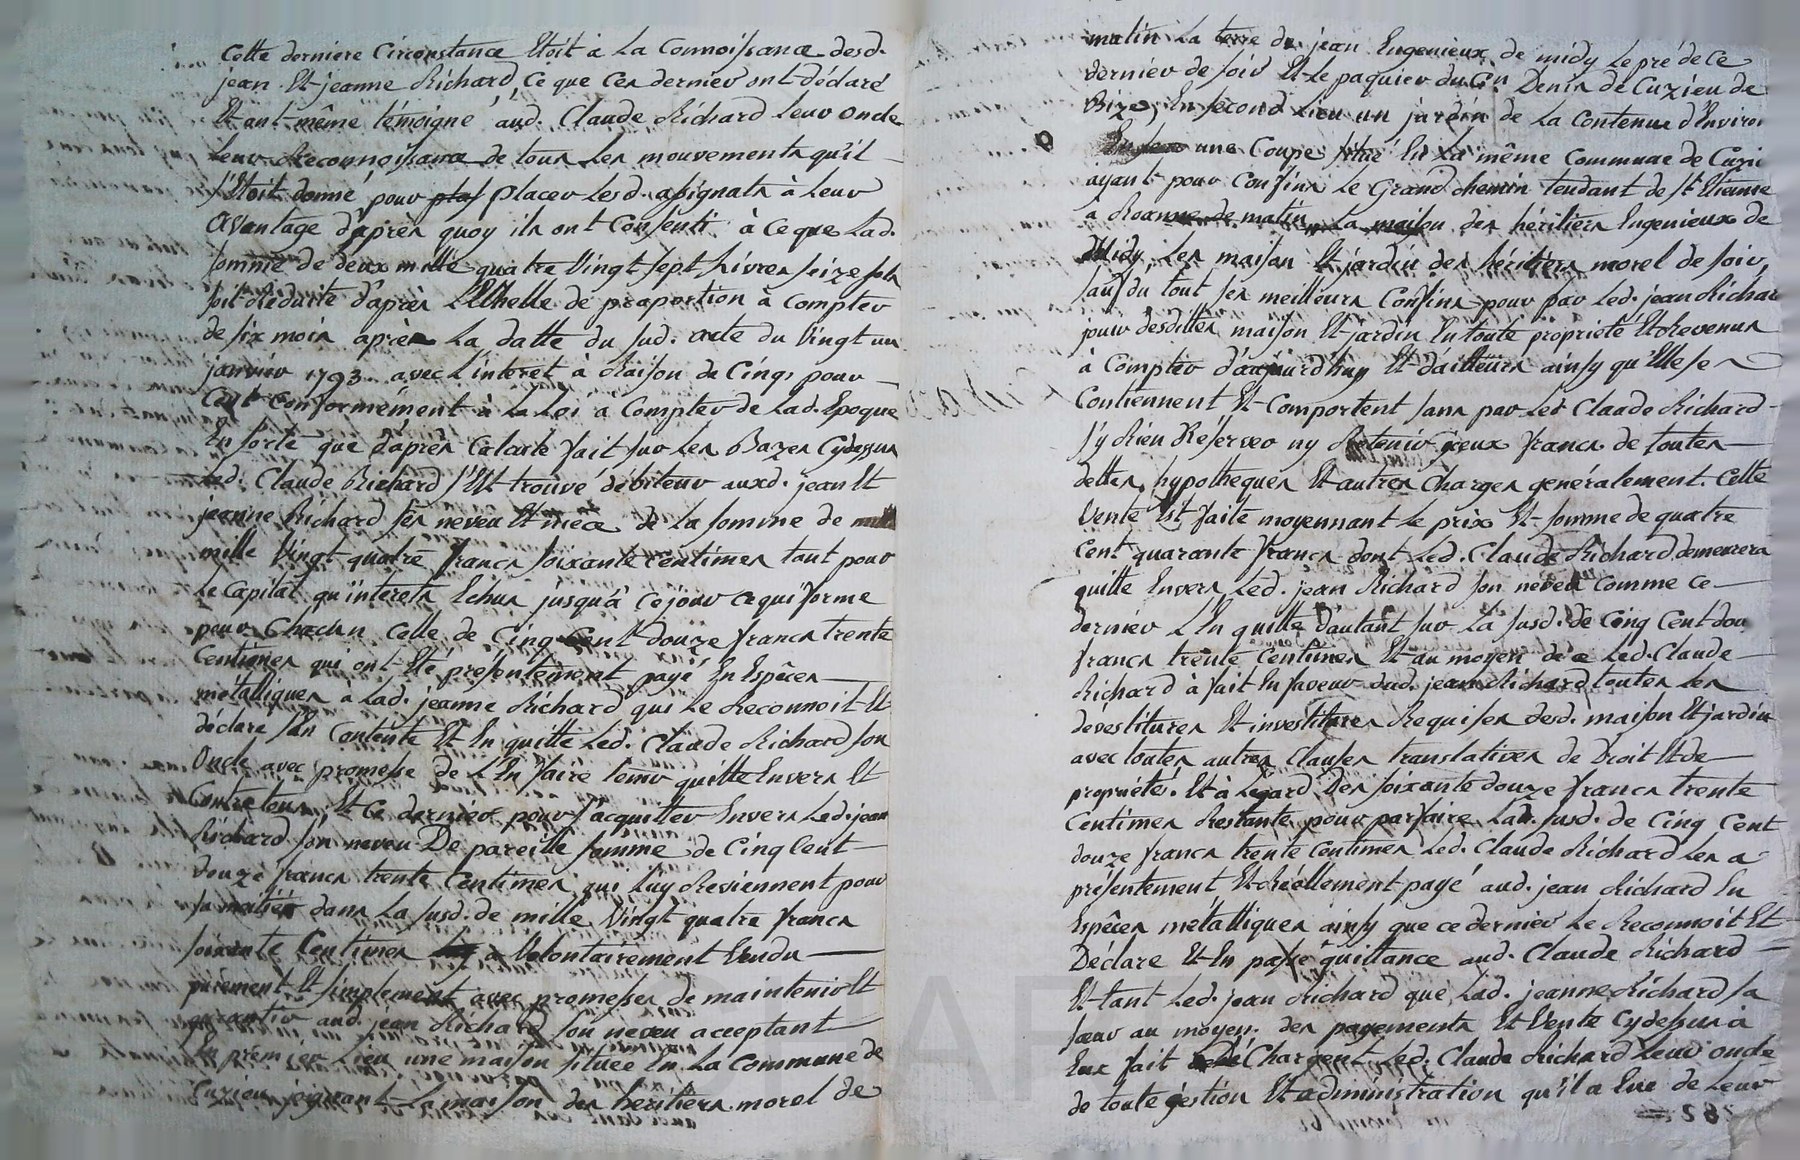 Cette derniere Circonstance Etoit à La Connoissance desd.
jean Et jeanne Richard, Ce que Ces dernier ont déclaré
Et ont même témoigné aud. Claude Richard Leur oncle
Leur Reconnoissance de tous Les mouvements qu'il
s'Etoit donné pour placer Lesd. assignats à Leur
avantage d'après quoy ils ont Consenti à Ce que Lad.
somme de deux mille quatre Vingt sept Livres seize sols
soit Réduite d'après L'Echelle de proportion à Compter
de six mois après La datte du sud. acte du Vingt un
janvier 1793. avec L'interet à Raison de Cinq pour
Cent Conformément à La Loi à Compter de Lad. Epoque
En sorte que d'après Calcule fait sur Les Bazes Cydessus
Led. Claude Richard s'Est trouvé débiteur auxd. jean Et
jeanne Richard ses neveu Et niece de La somme de
mille Vingt quatre francs soixante Centimes tant pour
Le Capital qu'interets Echus jusqu'à Ce jour Ce qui forme
pour Chacun Celle de Cinq Cent douze francs trente
Centimes qui ont Eté présentement payé En Espèces
métalliques a Lad. jeanne Richard qui Le Reconnoit Et
déclare s'En Contente Et En quitte Led. Claude Richard son
Oncle avec promesse de L'En faire tenir quitte Envers Et
Contre tous, Et Ce dernier pour s'acquitter Envers Led. jean
Richard son neveu De pareille somme de Cinq Cent
douze francs trente Centimes qui Luy Reviennent pour
sa moitié dans La susd. de mille Vingt quatre francs
soixante Centimes a Volontairement Vendu
purement Et simplement avec promesses de maintenir Et
garantir aud. jean Richard son neveu acceptant
En premier Lieu une maison située En La Commune de
Cuzieu joignant La maison des héritiers morel de
matin La terre de jean Engenieux de midy Le pré de Ce
dernier de soir Et Le paquier du Cn. Denis de Cuzieu de
Bize, En second Lieu un jardin de La Contenue d'Environ
une Coupe situé En La même Commune de Cuzi
ayant pour Confins Le Grand chemin tendant de St. Etienne
à Roanne de matin La maison des héritiers Engenieux de
Midy, Les maison Et jardin des héritiers morel de soir,
sauf du tout ses meilleurs Confins pour par Led. jean Richar
jouir desdittes maison Et jardin En toute propriété Et Revenus
à Compter d'aujourd'huy Et d'ailleurs ainsy qu'Elle se
Contiennent Et Comportent sans par Led. Claude Richard
s'y Rien Réserver ny Retenir, yceux francs de toutes
dettes, hypotheques Et autres Charges généralement. Cette
Vente Est faite moyennant Le prix Et somme de quatre
Cent quarante francs dont Led. Claude Richard demeurera
quitte Envers Led. jean Richard son neveu comme Ce
dernier L'En quitte d'autant sur La susd. de Cinq Cent dou
francs trente Centimes Et au moyen de Ce Led. Claude
Richard à fait En faveur dud. jean Richard toutes Les
devestitures Et investitures Requises desd. maison Et jardin
avec toutes autres Clauses translatives de Droit Et de
propriété. Et à L'égard Des soixante douze francs trente
Centimes Restante pour parfaire Lad. susd. de Cinq Cent
douze francs trente Centimes Led. Claude Richard Les a
présentement Et Réellement payé aud. jean Richard En
Espèces métalliques ainsy que ce dernier Le Reconnoit Et
Déclare Et En passe quittance aud. Claude Richard
Et tant Led. jean Richard que Lad. jeanne Richard sa
sœur au moyen des payements Et Vente Cydessus à
Eux fait Chargent Led. Claude Richard Leur oncle
de toute géstion Et administration qu'il a Eue de Leur